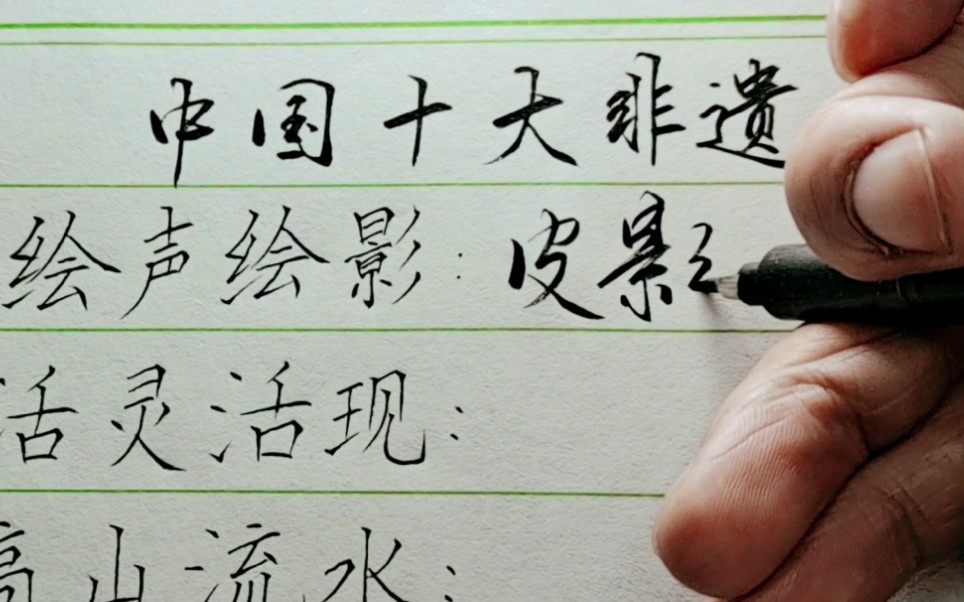 中国十大非遗
绘声绘影:皮影
活灵活现:
高山流水: